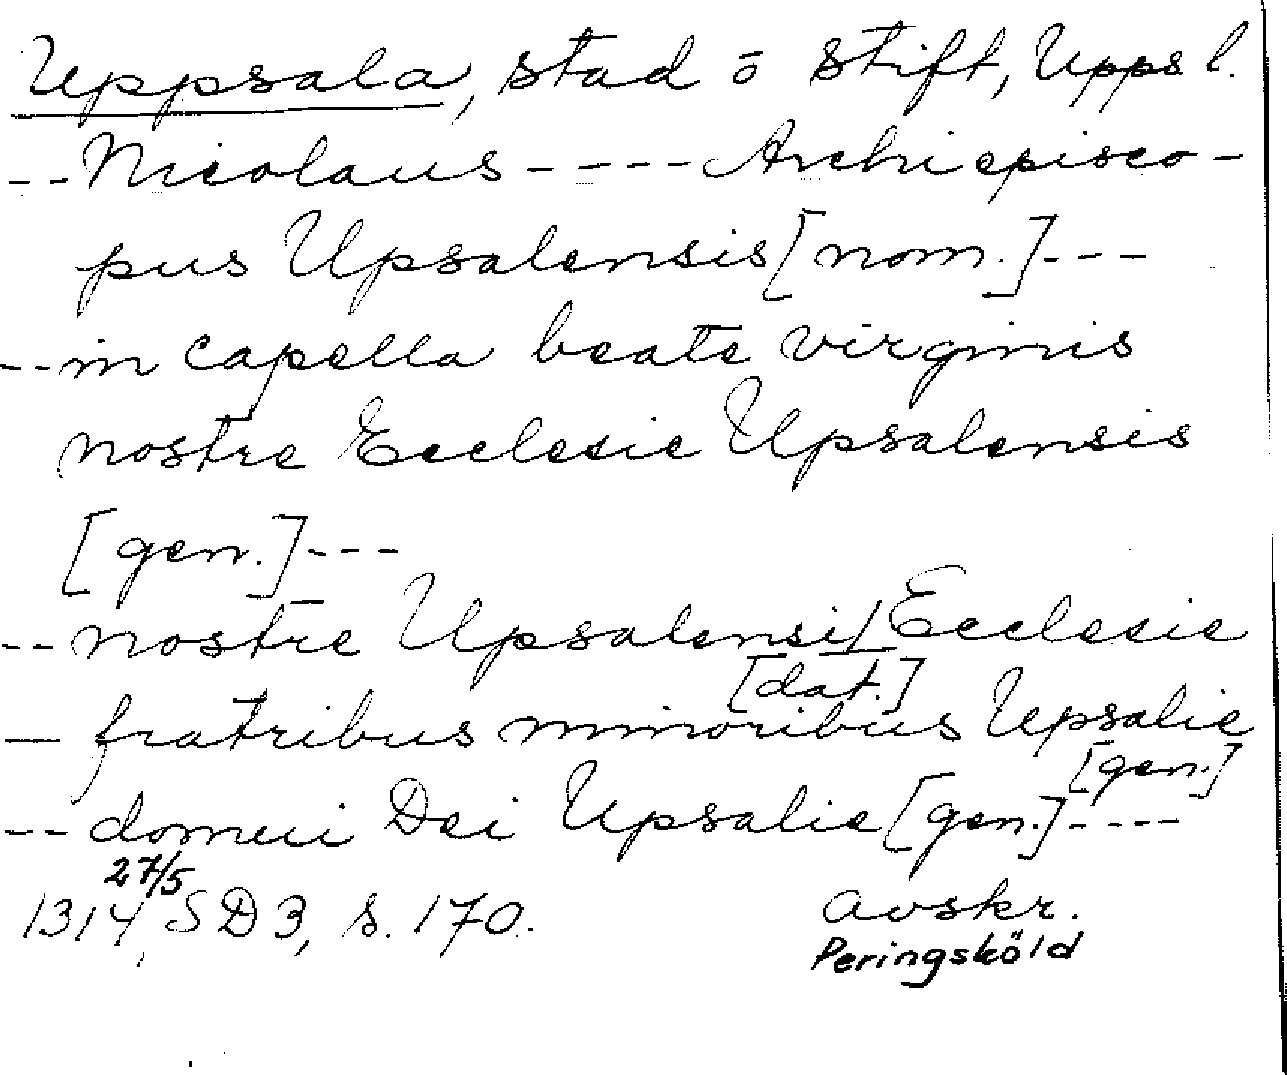 Uppsala, stad o stift, Uppsl.
--Nicolaus---- Archiepisco-
pus Upsalensis [nom.]---
--in capella beate virginis
nostre Ecclesie Upsalensis
[gen.]---
--nostre Upsalensi/ Ecclesie
[dat.]
— fratribus minoribus Upsalie
[gen.]
--domui Dei Upsalie [gen.]----
27/5
1314, SD 3, s. 170.
avskr.
Peringsköld